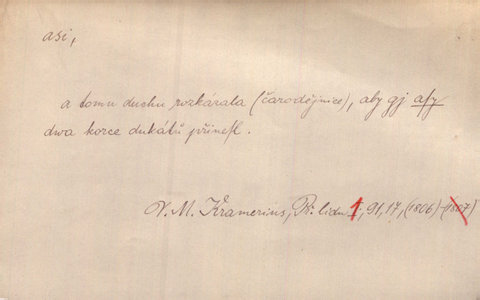 asi,
a tomu duchu rozkázala (čarodějnice), aby gj asy
dwa korce dukátů přinesl.
V. M. Kramerius, Př. lidu 1, 91, 17, (1806) (1807)